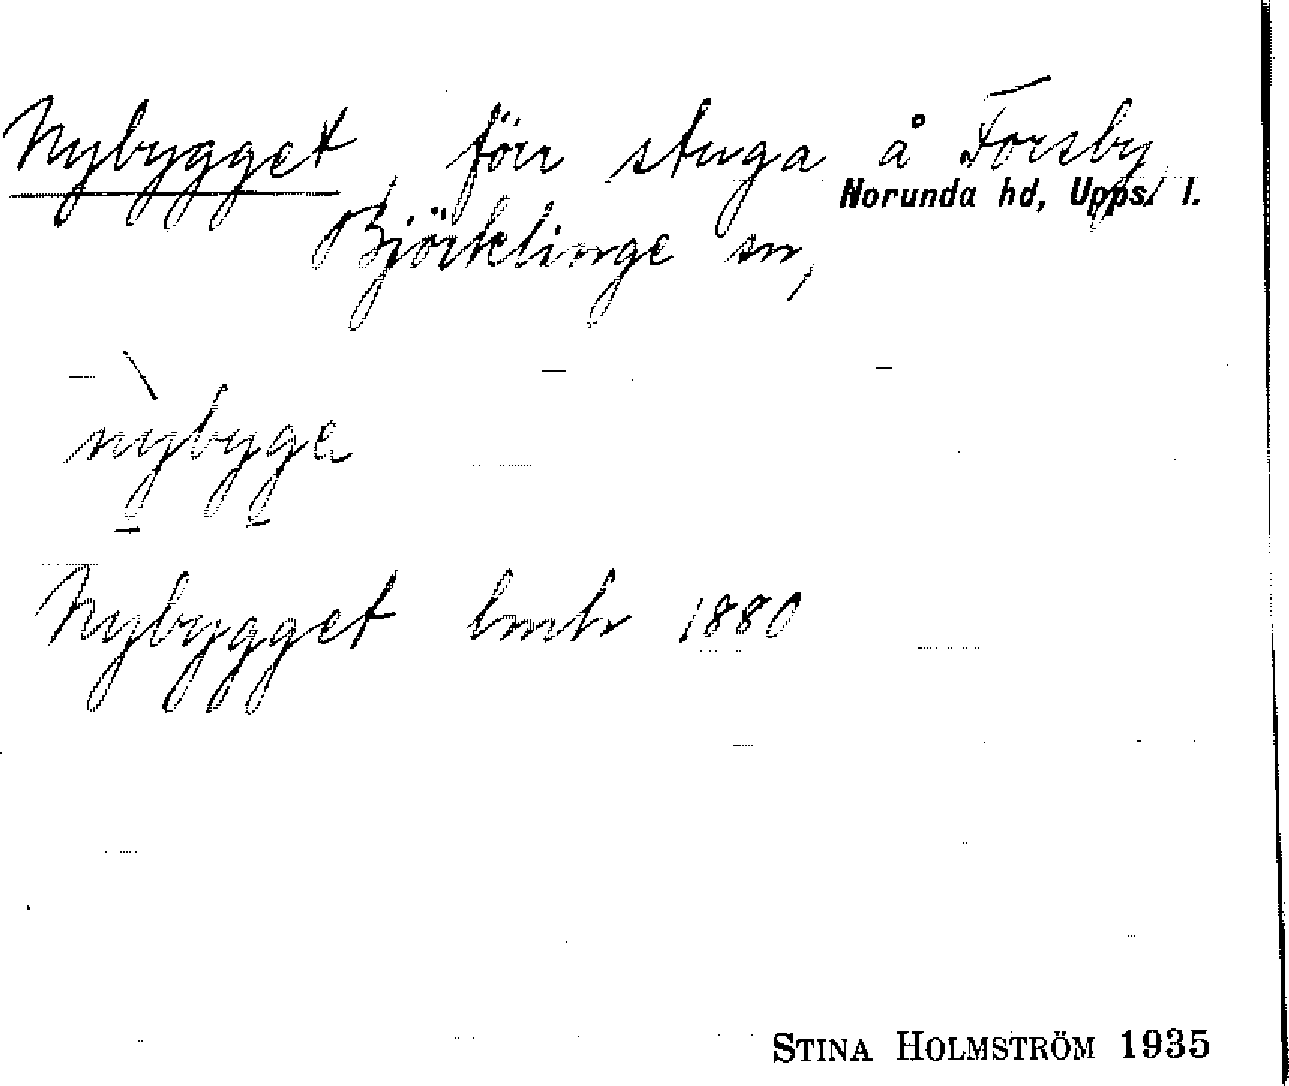 Nybygget, förr stuga å Forsby
Norunda hd, Upps. l.
Björklinge sn,
nỳbyge
Nybygget lmtr 1880
STINA HOLMSTRÖM 1935